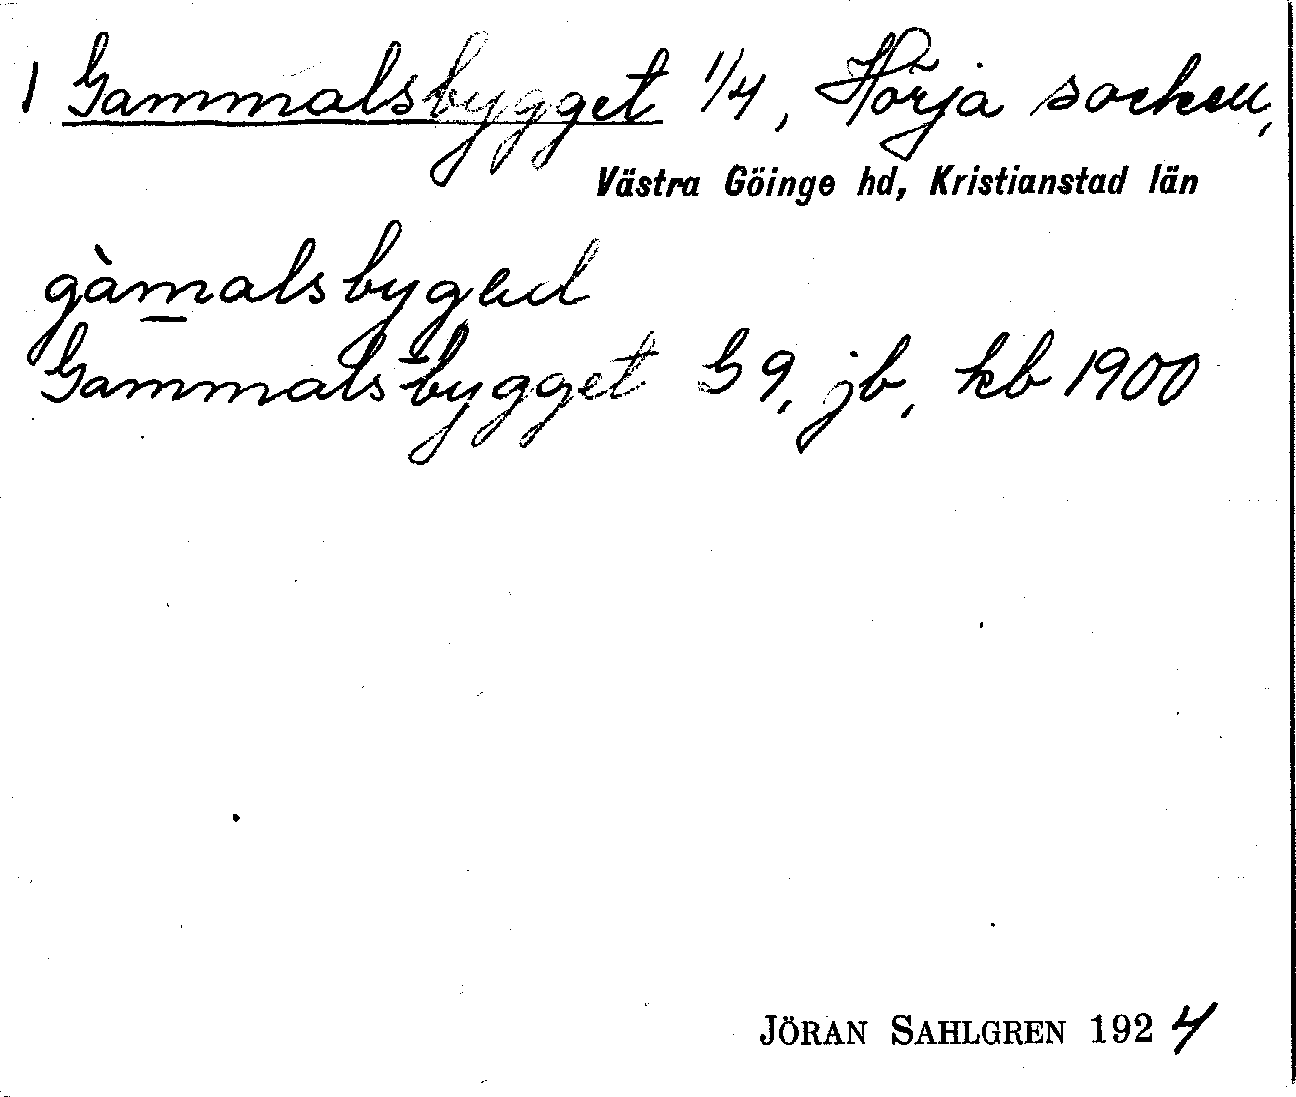 1 Gammalsbygget 1/4, Hörja socken,
Västra Göinge hd, Kristianstad län
gàmalsbygəd
Gammalsbygget G 9, jb, kb 1900
JÖRAN SAHLGREN 1924